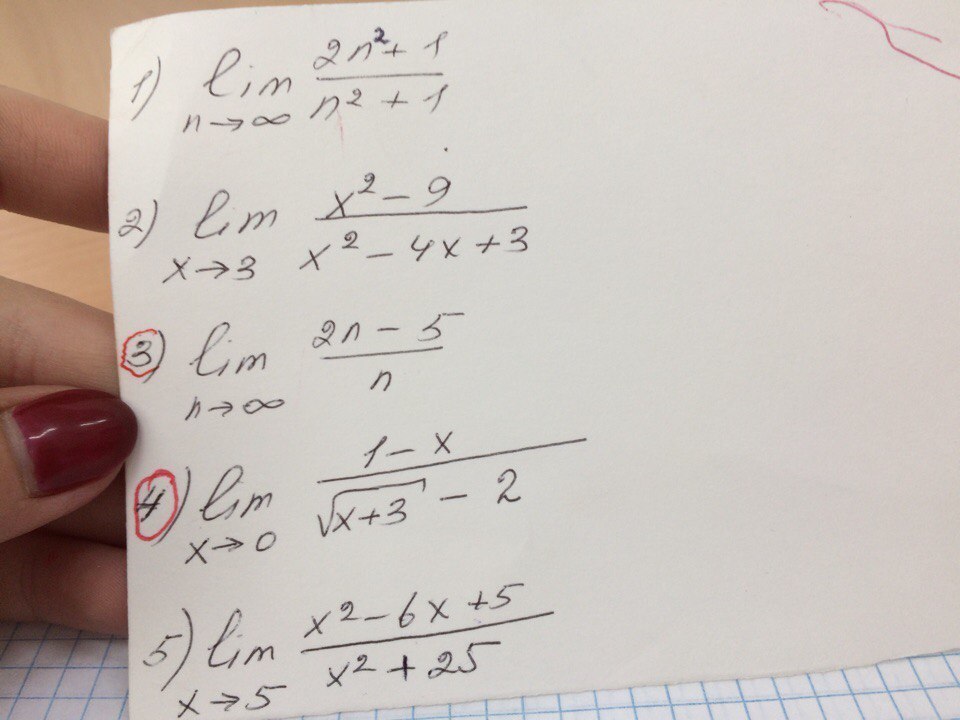 1) lim n→∞ (2n² + 1)/(n² + 1)
2) lim x→3 (x² - 9)/(x² - 4x + 3)
3) lim n→∞ (2n - 5)/n
4) lim x→0 (1 - x)/(√(x+3) - 2)
5) lim x→5 (x² - 6x + 5)/(x² + 25)